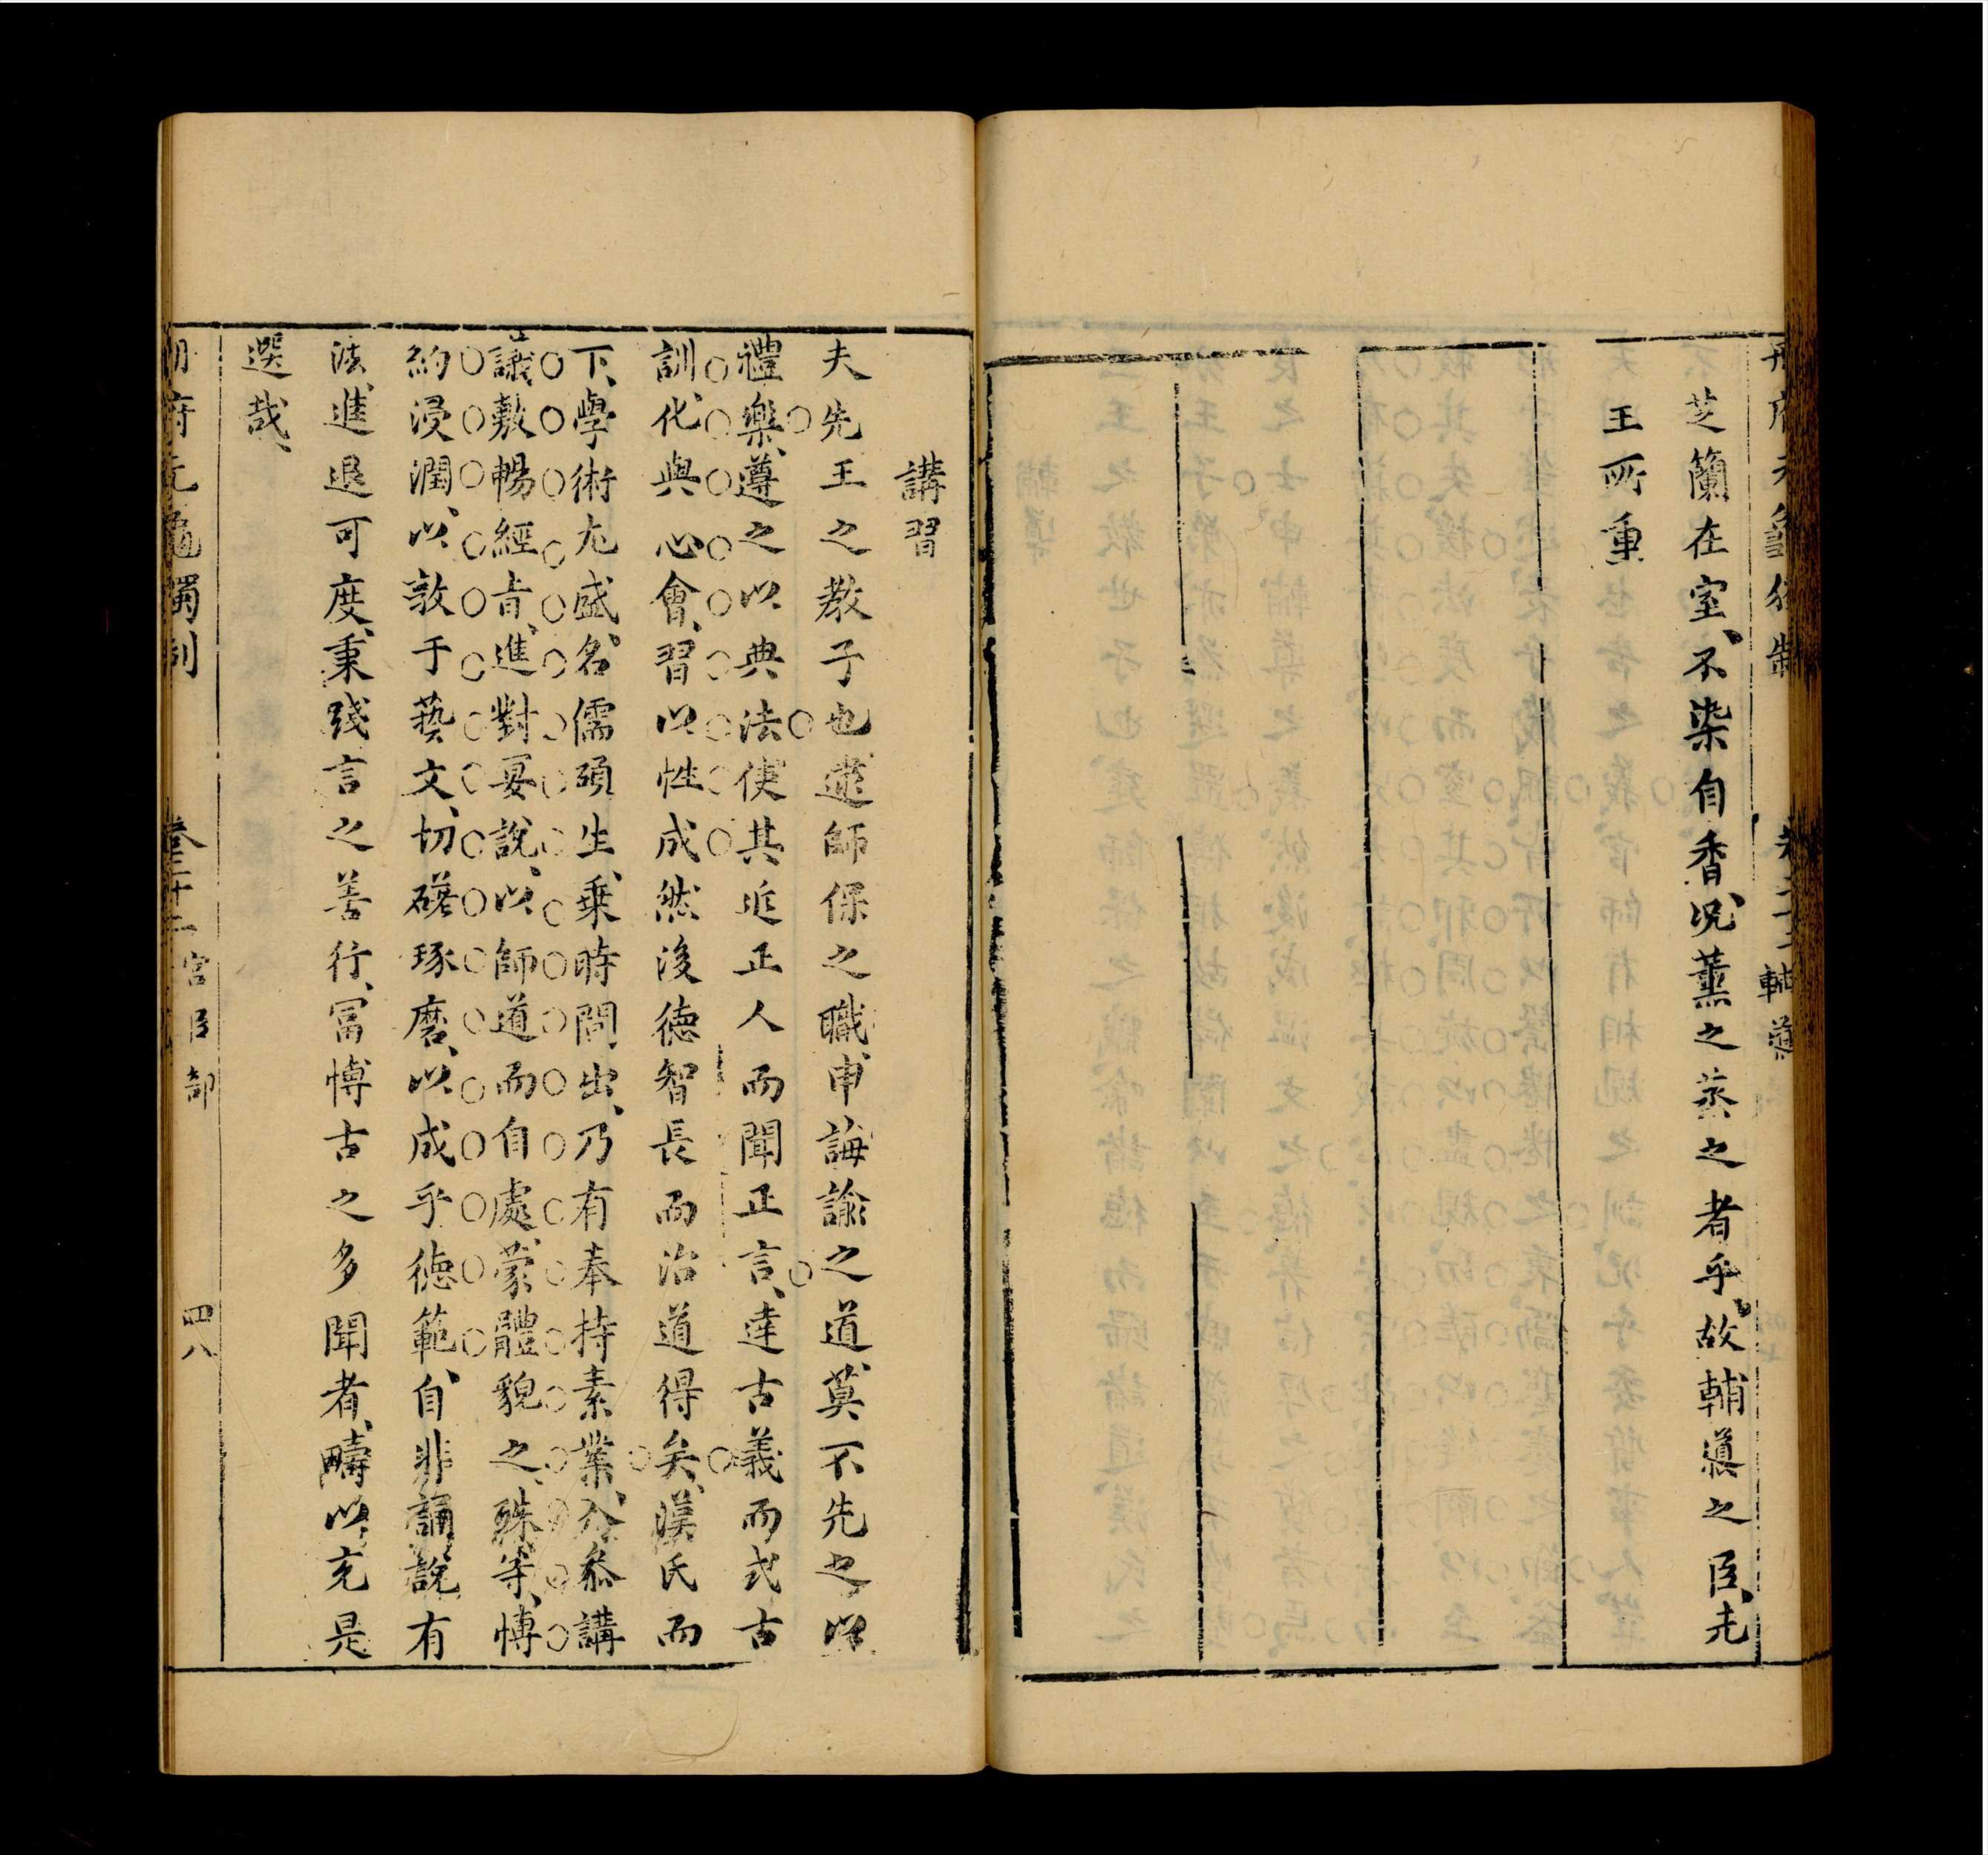 芝蘭在室不染自香况薰之蒸之者乎故輔導之臣先
王所重
講習
夫先王之教子也建師保之職申誨諭之道莫不先之以
禮樂遵之以典法使其近正人而聞正言達古義而式古
訓化與心會習以性成然後德智長而治道得矣漢氏而
下學術尤盛名儒碩生乗時間出乃有奉持素業入叅講
議敷暢經旨進對宴說以師道而自處蒙體貌之殊等博
約浸潤以敦于藝文切磋琢磨以成乎德範自非誦說有
法進退可度秉践言之善行冨博古之多聞者疇以充是
選哉
册府元龜獨制
卷二十二
宫臣部
四八